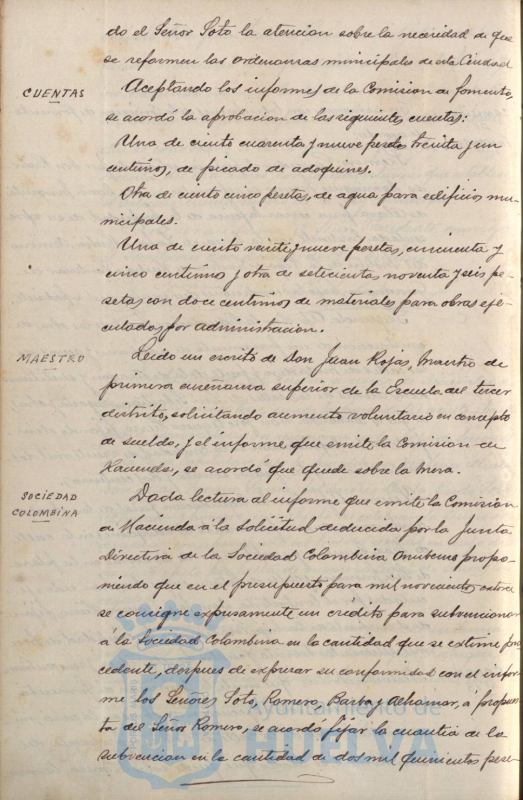 do el Señor Soto la atencion sobre la necesidad de que
se reformen las ordenanzas municipales de esta Ciudad
CUENTAS
Aceptando los informes de la Comision de fomento,
se acordó la aprobacion de las siguientes cuentas:
Una de ciento cuarenta y nueve pesetas treinta y un
centimos, de picado de adoquines.
Otra de ciento cinco pesetas, de agua para edificios mu-
nicipales.
Una de ciento veinte y nueve pesetas, cincuenta y
cinco centimos y otra de setecientas noventa y seis pe-
setas con doce centimos de materiales para obras eje-
cutadas por administracion.
MAESTRO
Leido un escrito de Don Juan Rojas, Maestro de
primera enseñanza superior de la Escuela del tercer
distrito, solicitando aumento voluntario en concepto
de sueldo, y el informe que emite la Comision de
Hacienda, se acordó que quede sobre la mesa.
SOCIEDAD
COLOMBINA
Dada lectura al informe que emite la Comision
de Hacienda á la solicitud deducida por la Junta
Directiva de la Sociedad Colombina Onubense propo-
niendo que en el presupuesto para mil novecientos catorce
se consigne expresamente un crédito para subvencionar
á la Sociedad Colombina en la cantidad que se estime pro
cedente, despues de expresar su conformidad con el infor-
me los Señores Soto, Romero, Barba y Alhamar, á propues
ta del Señor Romero, se acordó fijar la cuantia de la
subvencion en la cantidad de dos mil quinientas pese-
Ayuntamiento de
HUELVA